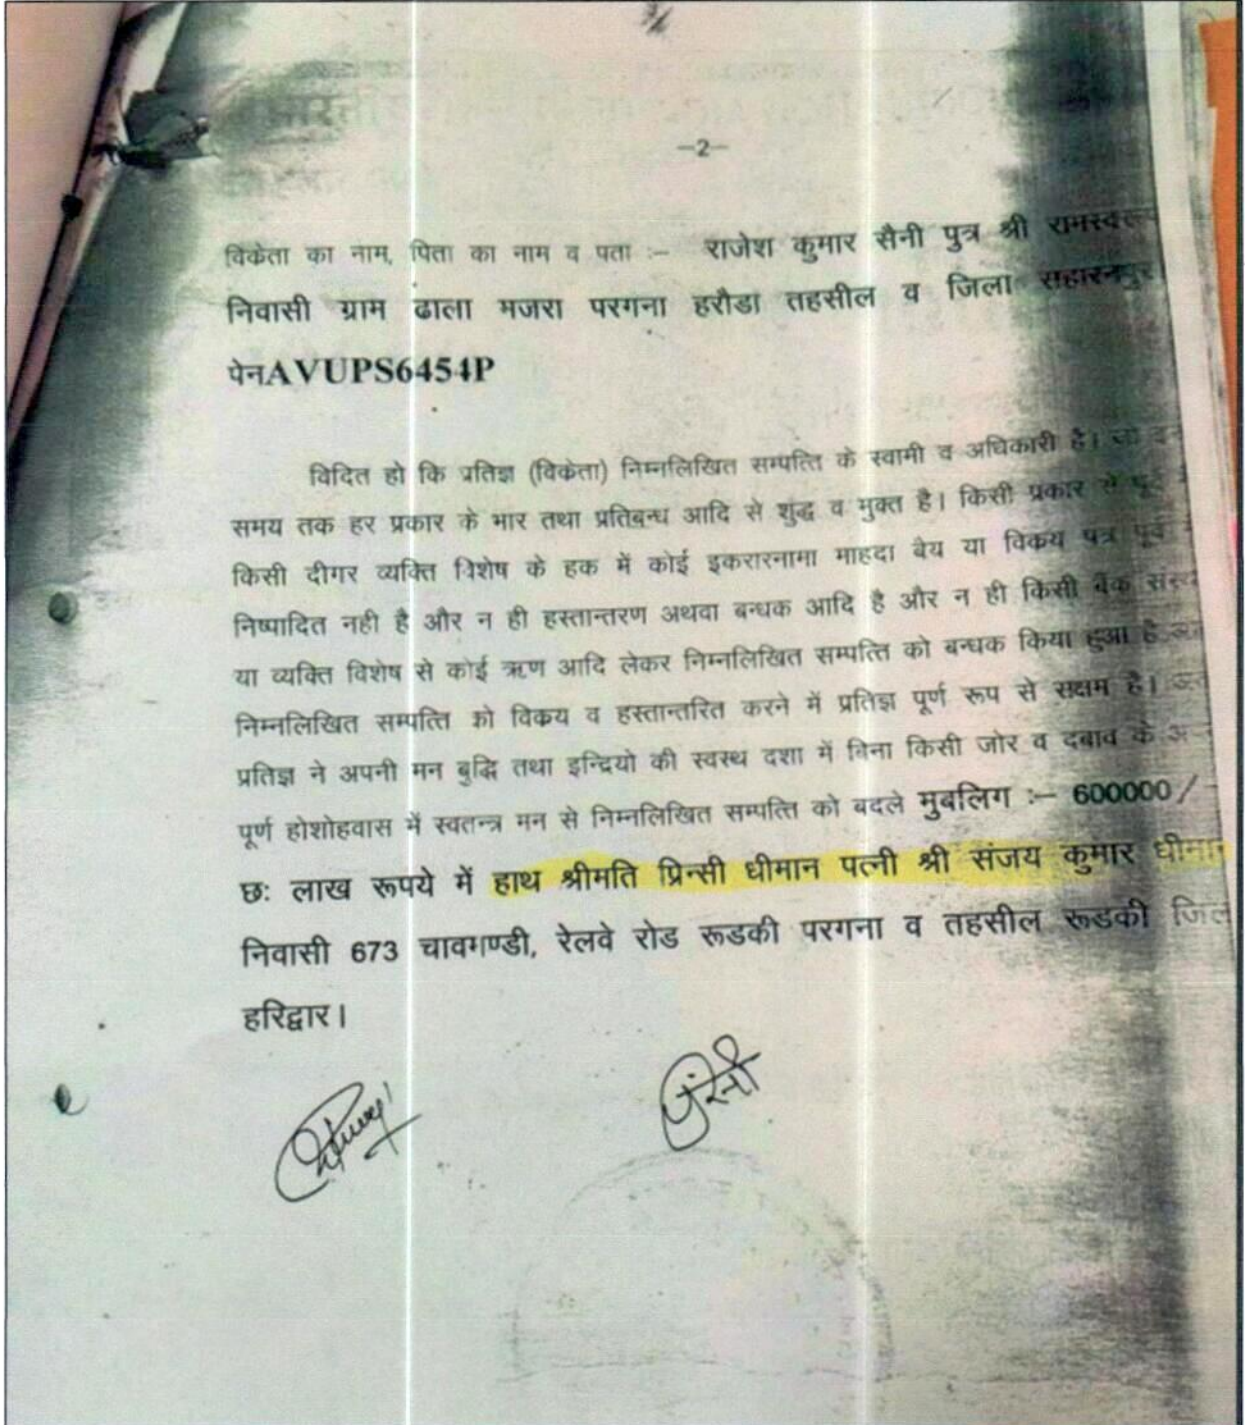 —2—
विकेता का नाम, पिता का नाम व पता :— राजेश कुमार सैनी पुत्र श्री रामस्वरूप
निवासी ग्राम ढाला मजरा परगना हरौडा तहसील व जिला सहारनपुर
पेनAVUPS6454P
विदित हो कि प्रतिज्ञ (विकेता) निम्नलिखित सम्पत्ति के स्वामी व अधिकारी है। जो इस
समय तक हर प्रकार के भार तथा प्रतिबन्ध आदि से शुद्ध व मुक्त है। किसी प्रकार से पूर्व में
किसी दीगर व्यक्ति विशेष के हक में कोई इकरारनामा माहदा बैय या विकय पत्र पूर्व में
निष्पादित नही है और न ही हस्तान्तरण अथवा बन्धक आदि है और न ही किसी बैंक
या व्यक्ति विशेष से कोई ऋण आदि लेकर निम्नलिखित सम्पत्ति को बन्धक किया हुआ है
निम्नलिखित सम्पत्ति को विकय व हस्तान्तरित करने में प्रतिज्ञ पूर्ण रूप से सक्षम है।
प्रतिज्ञ ने अपनी मन बुद्धि तथा इन्द्रियो की स्वस्थ दशा में बिना किसी जोर व दबाव के
पूर्ण होशोहवास में स्वतन्त्र मन से निम्नलिखित सम्पत्ति को बदले मुबलिग :— 600000/
छः लाख रूपये में हाथ श्रीमति प्रिन्सी धीमान पत्नी श्री संजय कुमार धीमान
निवासी 673 चावमण्डी, रेलवे रोड रूडकी परगना व तहसील रूडकी जिला
हरिद्वार।